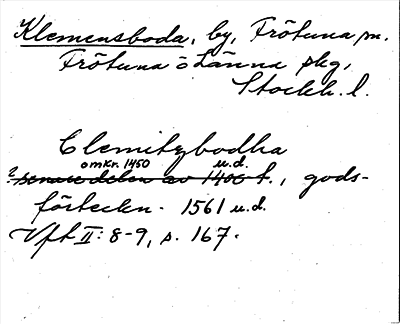 Klemensboda, by, Frötuna sn.
Frötuna o Länna skg,
Stockh. l.
Clemitzbodha
omkr. 1450 u.d.
2 senare delen av 1400 t., gods-
förteckn. 1561 u.d.
Vft II: 8-9, s. 167.